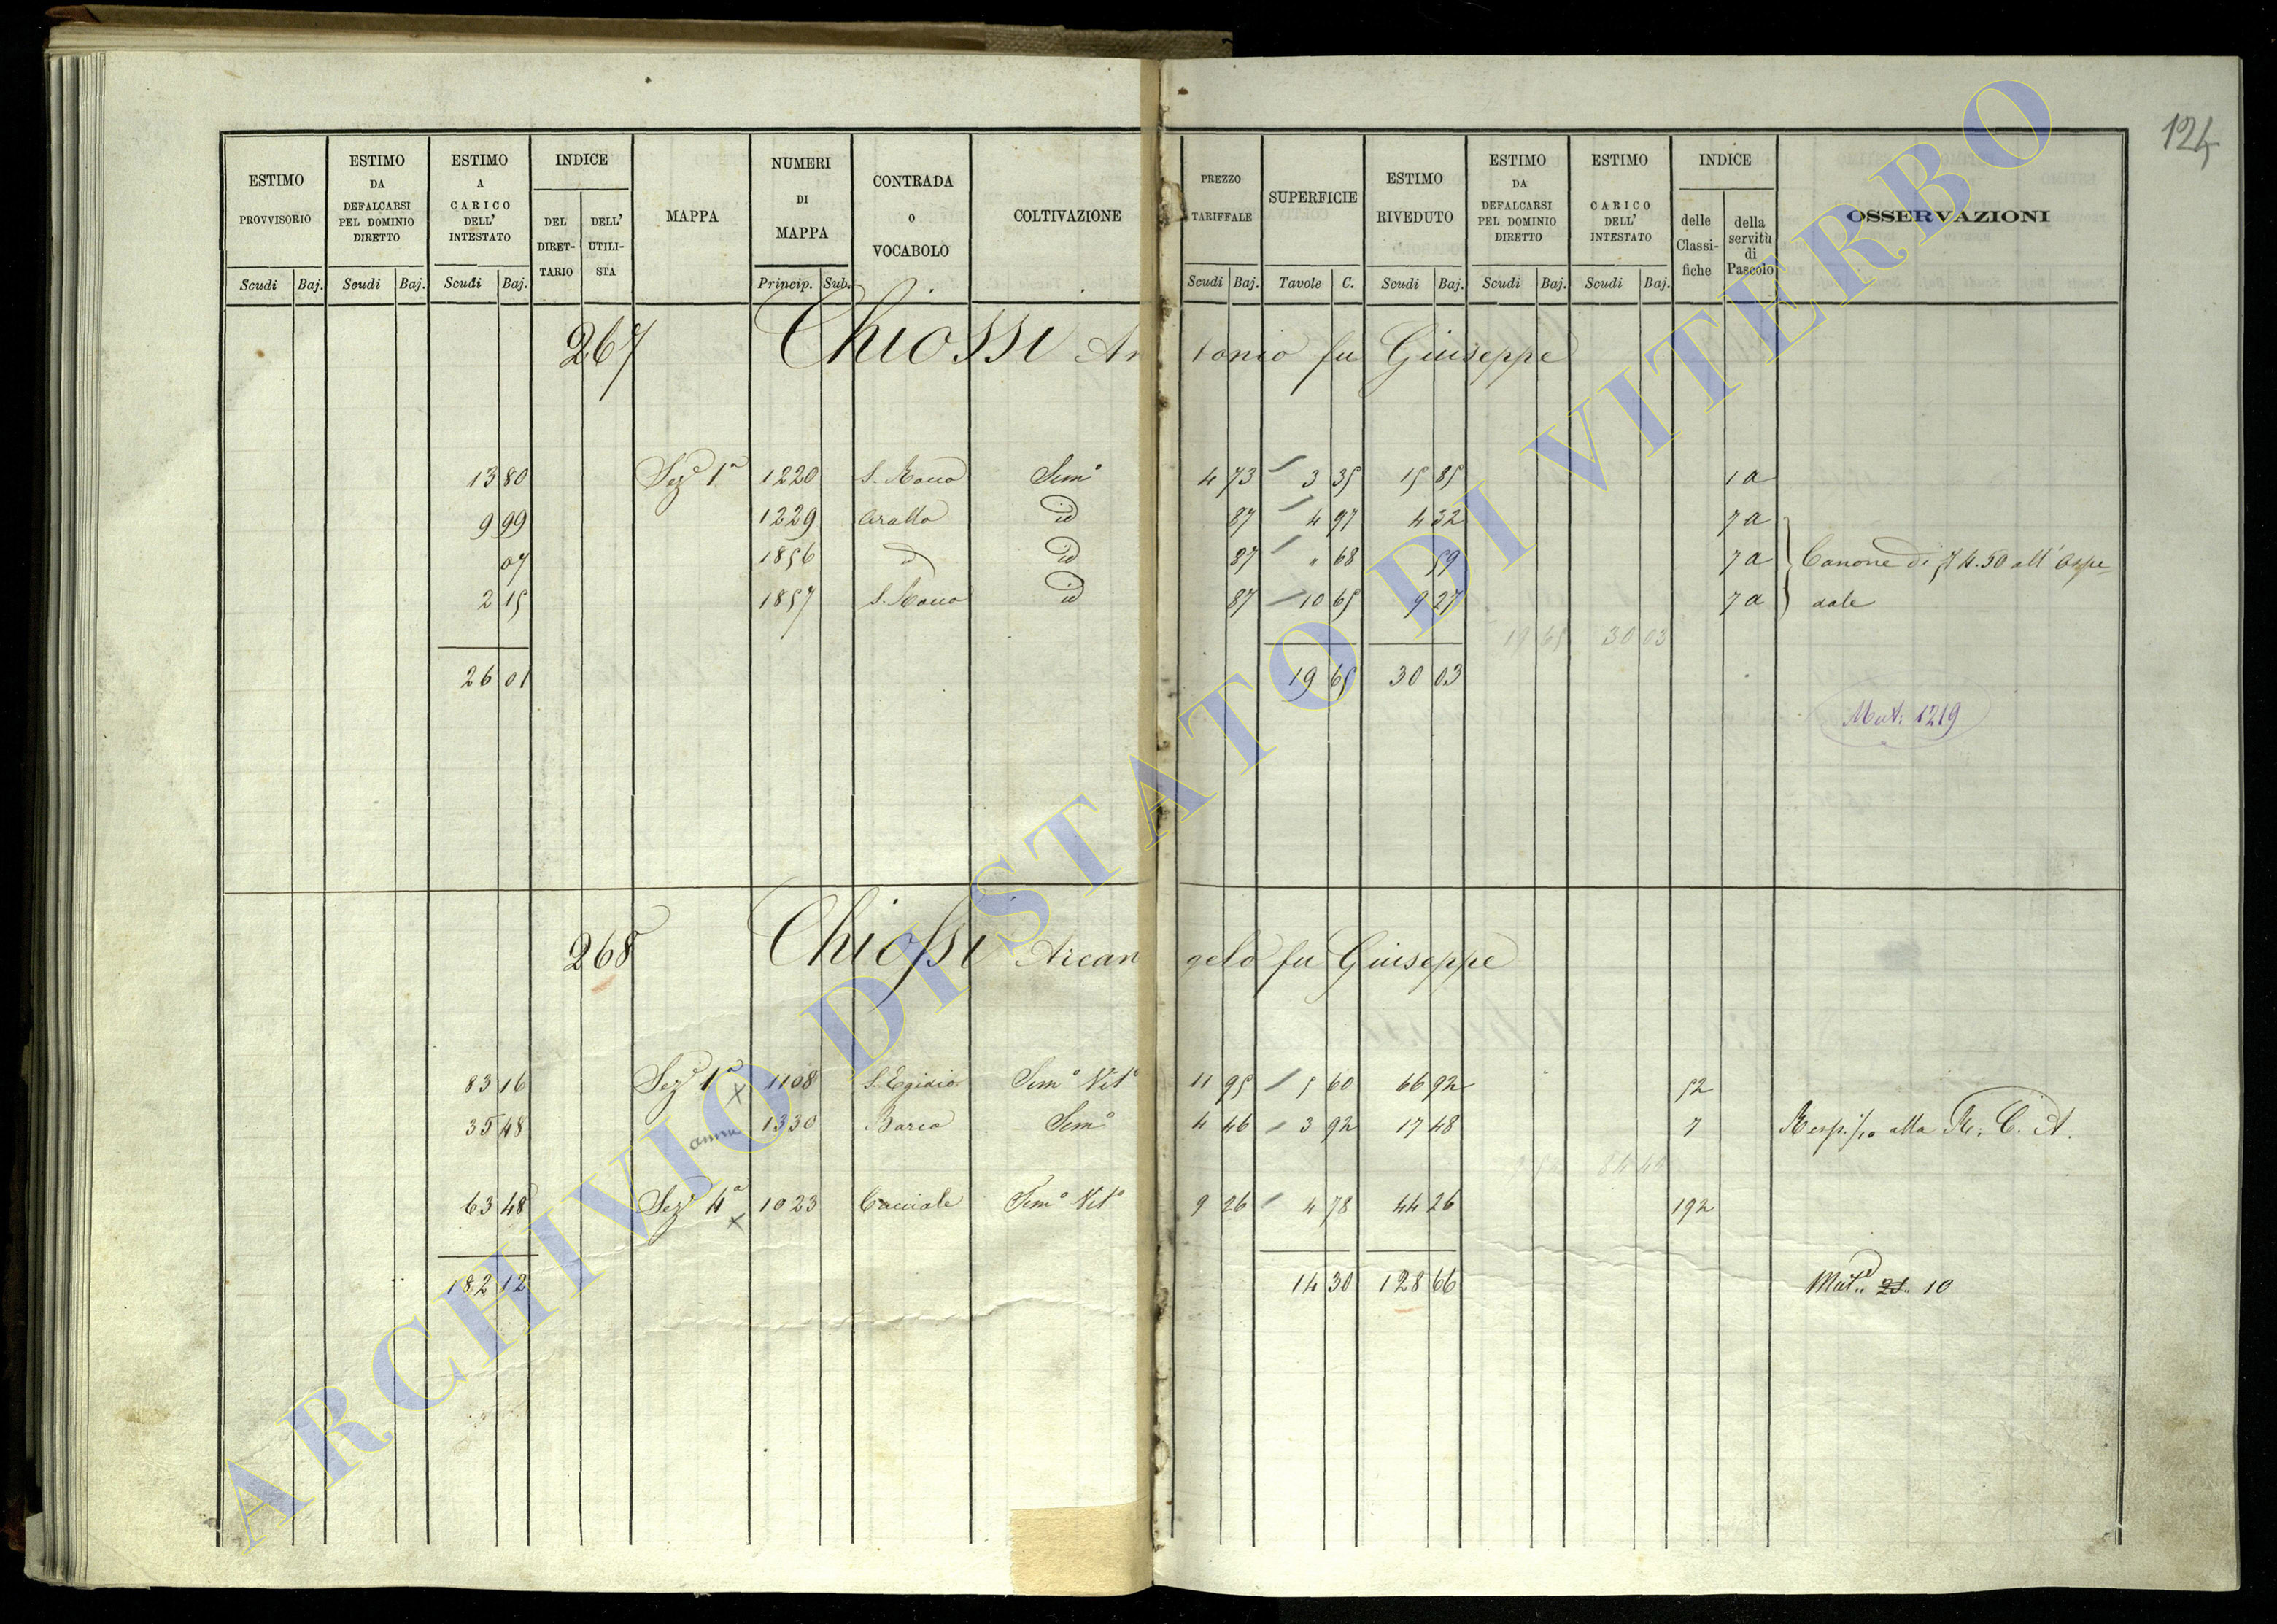 124
ESTIMO PROVVISORIO
ESTIMO DA DEFALCARSI PEL DOMINIO DIRETTO
ESTIMO A CARICO DELL' INTESTATO
INDICE
DEL DIRET-TARIO
DELL' UTILI-STA
MAPPA
NUMERI DI MAPPA
CONTRADA O VOCABOLO
COLTIVAZIONE
PREZZO TARIFFALE
SUPERFICIE
ESTIMO RIVEDUTO
ESTIMO DA DEFALCARSI PEL DOMINIO DIRETTO
ESTIMO A CARICO DELL' INTESTATO
INDICE
delle Classi-fiche
della servitù di Pascolo
OSSERVAZIONI
Scudi Baj. Scudi Baj. Scudi Baj. Princip. Sub. Scudi Baj. Tavole C. Scudi Baj. Scudi Baj. Scudi Baj.
267 Chiossi Antonio fu Giuseppe
13 80 Sez.e 1a 1220 S. Rocco Sem.o 4 73 3 35 15 85 1 a
9 99 1229 id 87 4 97 4 32 7 a
07 1856 id id 87 " 68 59 7 a Canone di 4.50 all' Ospe
2 15 1857 S. Rocco id 87 10 65 9 27 7 a dale
19 65 30 03
26 01 19 65 30 03
Mut: 1219
268 Chiossi Arcangelo fu Giuseppe
83 16 Sez.e 1a x 1108 S. Egidio Sem.o Vit.o 11 95 5 60 66 92 52
35 48 1330 Barco Sem.o 4 46 3 92 17 48 7 Risp. alla R. C. A.
63 48 Sez.e 4a x 1023 Cacciale Sem.o Vit.o 9 26 4 78 44 26 192
182 12 14 30 128 66 Mut.e 21 10
ARCHIVIO DI STATO DI VITERBO